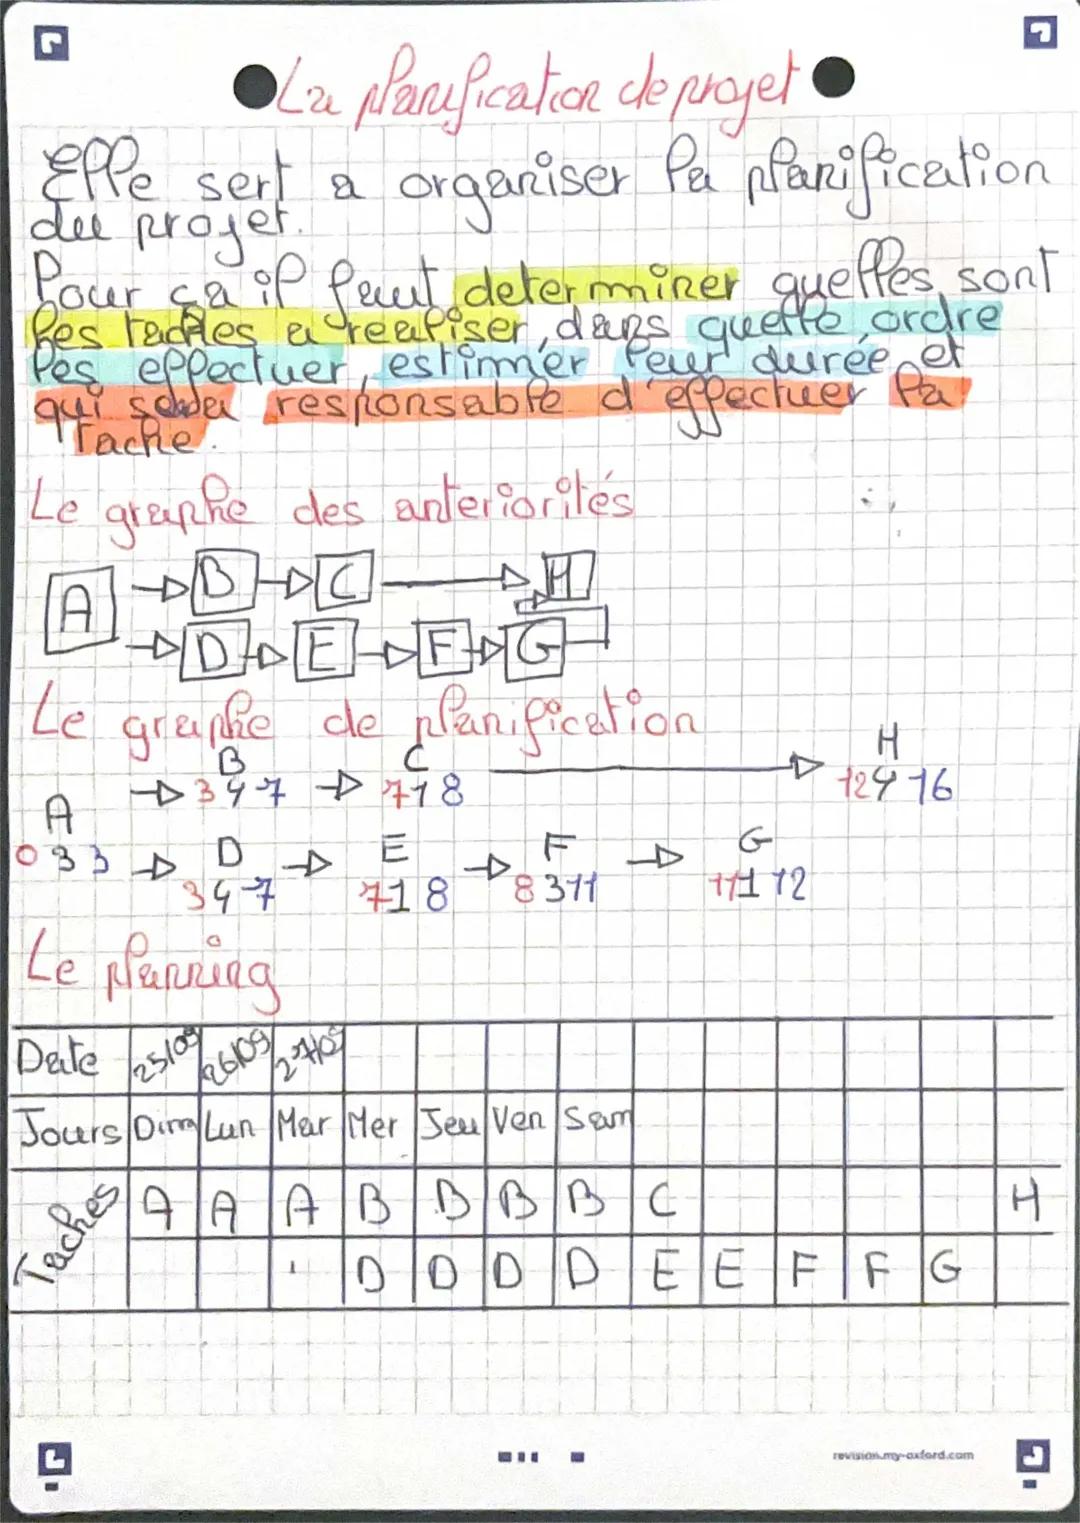 La planification de projet
Elle sert a organiser la planification
du projet.
Pour ça il faut determiner quelles sont
les taches a realiser, dans quelle ordre
les effectuer, estimmer leur durée et
qui sera responsable d'effectuer la
tache.
Le graphe des anteriorités
A B C H
D E F G
Le graphe de planification
B C H
3 4 7 7 1 8 12 4 16
A
0 3 3
D E F G
3 4 7 7 1 8 8 3 11 11 1 12
Le planning
Date 25/09 26/09 27/09
Jours Dim Lun Mar Mer Jeu Ven Sam
Taches A A A B B B B C H
D D D D E E F F G
revision.my-oxford.com